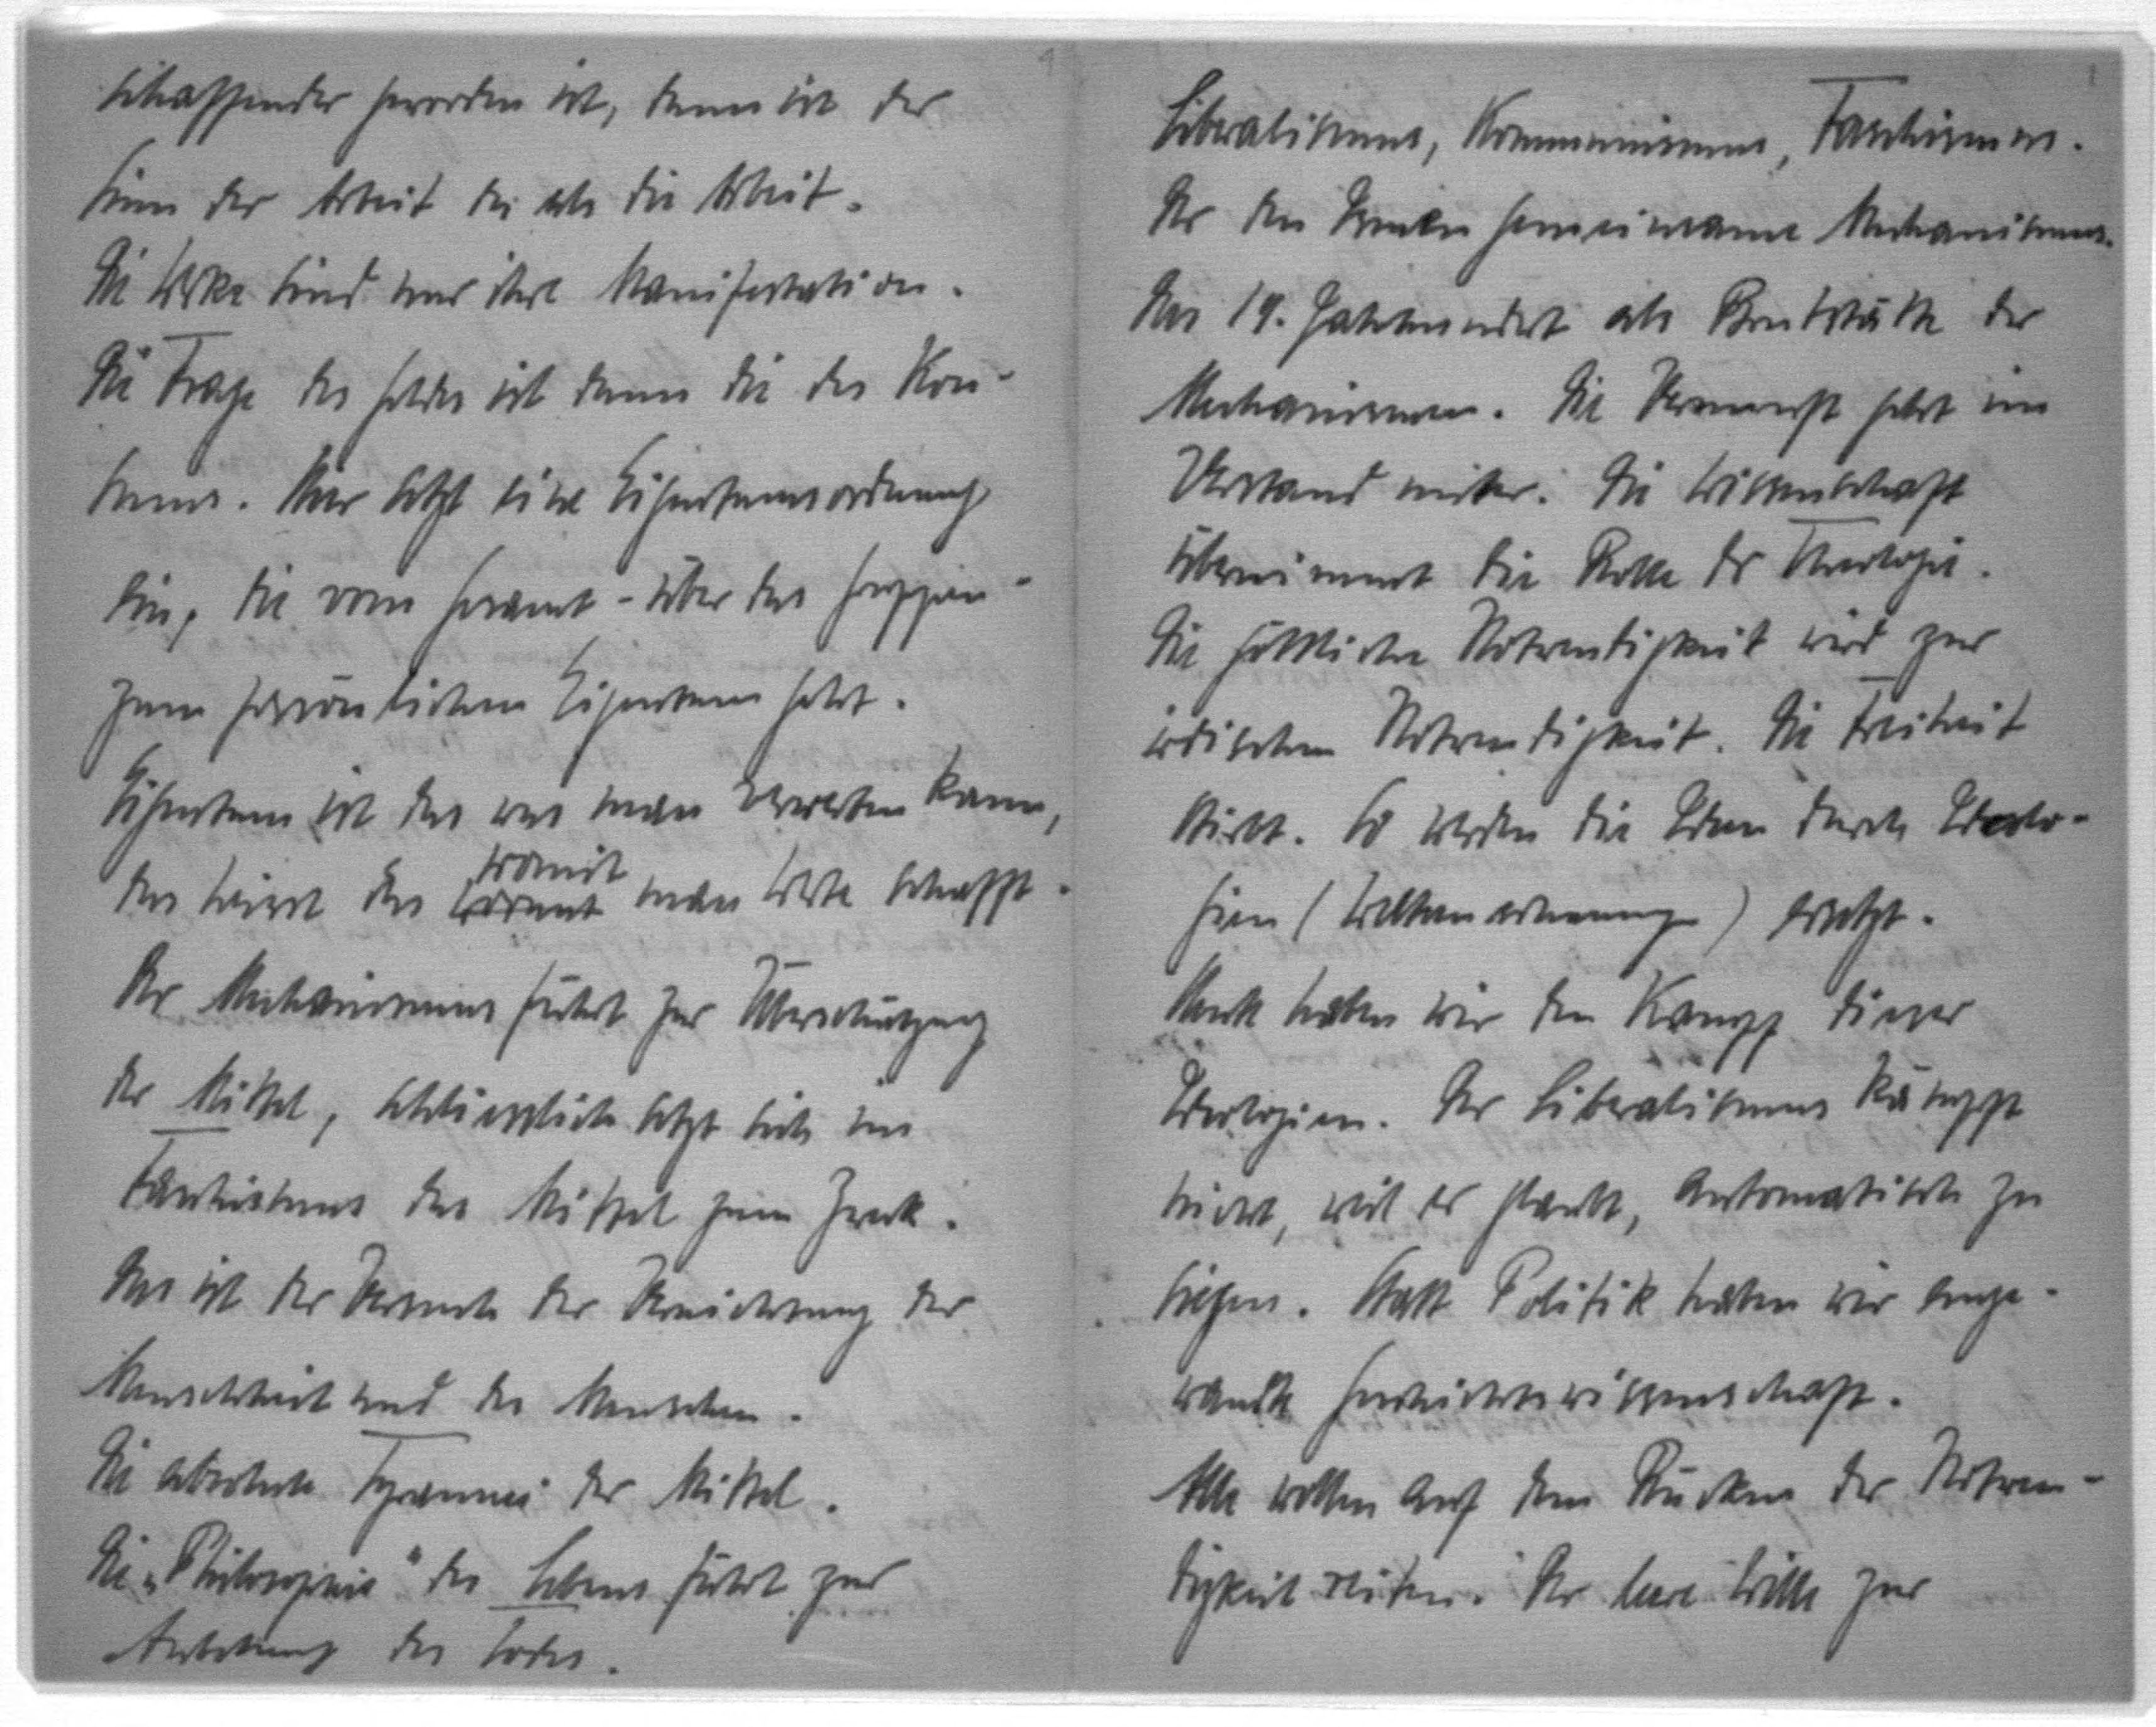 schaffender geworden ist, dann ist der
Sinn der Arbeit die Arbeit.
Die Werke sind nur ihre Manifestation.
Die Frage des Geldes ist dann die des Kon-
sums. Nur setzt eine Eigentumsordnung
ein, die vom Gesamt- über das Gruppen-
zum persönlichen Eigentum geht.
Eigentum ist das was man verwerten kann,
das heisst das womit man Werte schafft.
Der Mechanismus führt zur Überschätzung
der Mittel, schliesslich setzt sich im
Faschismus das Mittel zum Zweck.
Das ist der Versuch der Vernichtung der
Menschheit und des Menschen.
Die absolute Tyrannei der Mittel.
Die „Philosophie" des Lebens führt zur
Anbetung des Todes.
Liberalismus, Kommunismus, Faschismus.
Der den Dreien gemeinsame Mechanismus.
Das 19. Jahrhundert als Brutstätte der
Mechanismen. Die Vernunft geht im
Verstand unter. Die Wissenschaft
übernimmt die Rolle der Theologie.
Die göttliche Notwendigkeit wird zur
irdischen Notwendigkeit. Die Freiheit
stirbt. So werden die Ideen durch Ideolo-
gien (Weltanschauung) ersetzt.
Heute haben wir den Kampf dieser
Ideologien. Der Liberalismus kämpft
nicht, weil er glaubt, automatisch zu
siegen. Statt Politik haben wir ange-
wandte Geschichtswissenschaft.
Alle wollen auf dem Rücken der Notwen-
digkeit reiten. Der leere Wille zur